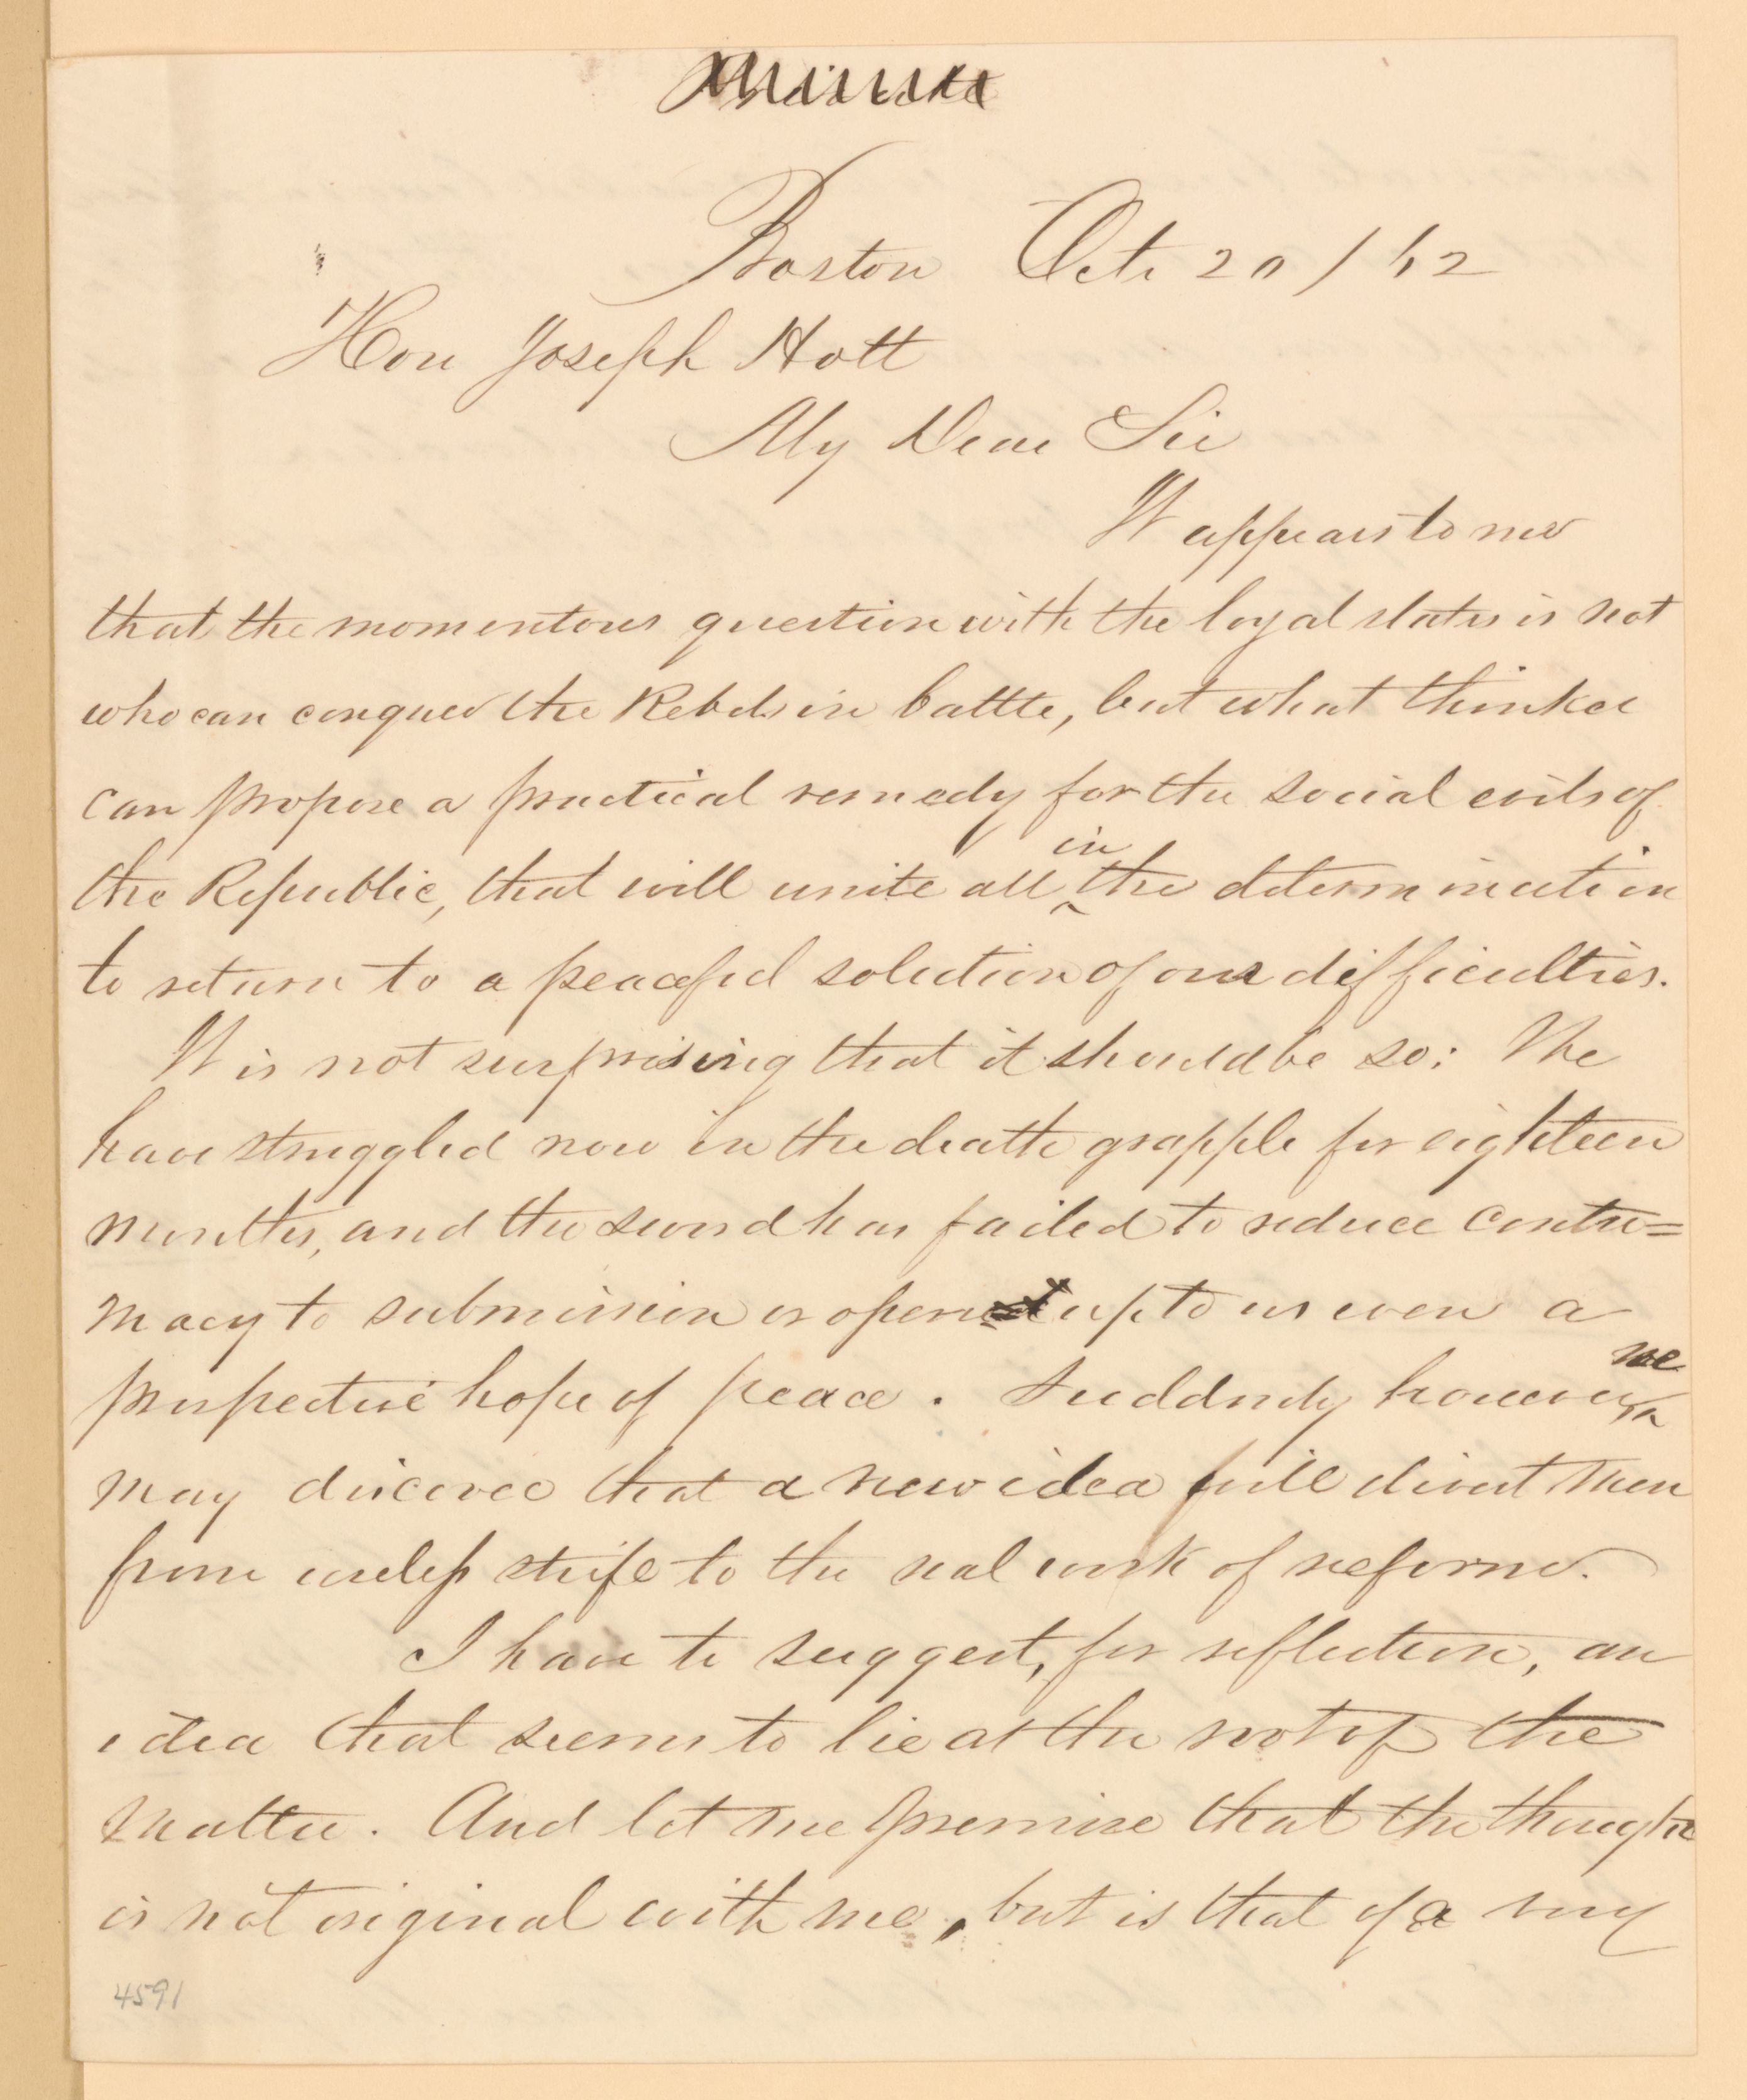 Boston Oct. 20 / 62
Hon Joseph Holt
My Dear Sir
It appears to me
that the momentous question with the loyal states is not
who can conquer the Rebels in battle, but what thinker
can propose a practical remedy for the social evils of
the Republic, that will unite all in the determination
to return to a peaceful solution of our difficulties.
It is not surprising that it should be so: We
have struggled now in the death grapple for eighteen
months, and the sword has failed to reduce contu=
macy to submission or open up to us even a
prospective hope of peace. Suddenly however we
may discover that a new idea will divert men
from useless strife to the real work of reform.
I have to suggest, for reflection, an
idea that seems to lie at the root of the
matter. And let me premise that the thought
is not original with me, but is that of a very
4591